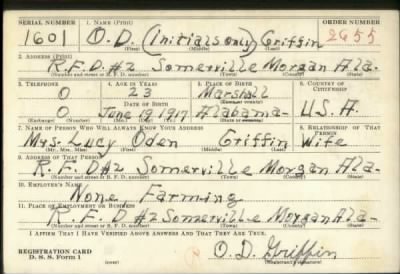 SERIAL NUMBER 1. NAME (Print) ORDER NUMBER
1601 O.D. (Initials only) Griffin 2655
(First) (Middle) (Last)
2. ADDRESS (Print)
R.F.D. #2 Somerville Morgan Ala.
(Number and street or R. F. D. number) (Town) (County) (State)
3. TELEPHONE 4. AGE IN YEARS 5. PLACE OF BIRTH 6. COUNTRY OF CITIZENSHIP
O 23 Marshall
DATE OF BIRTH (Town or county)
O June 19, 1917 Alabama U.S.A.
(Exchange) (Number) (Mo.) (Day) (Yr.) (State or country)
7. NAME OF PERSON WHO WILL ALWAYS KNOW YOUR ADDRESS 8. RELATIONSHIP OF THAT PERSON
Mrs. Lucy Oden Griffin Wife
(Mr., Mrs., Miss) (First) (Middle) (Last)
9. ADDRESS OF THAT PERSON
R.F.D #2 Somerville Morgan Ala-
(Number and street or R. F. D. number) (Town) (County) (State)
10. EMPLOYER'S NAME
None Farming
11. PLACE OF EMPLOYMENT OR BUSINESS
R.F.D #2 Somerville Morgan Ala-
(Number and street or R. F. D. number) (Town) (County) (State)
I AFFIRM THAT I HAVE VERIFIED ABOVE ANSWERS AND THAT THEY ARE TRUE.
REGISTRATION CARD
D. S. S. Form 1 (over) O. D. Griffin
(Registrant's signature)